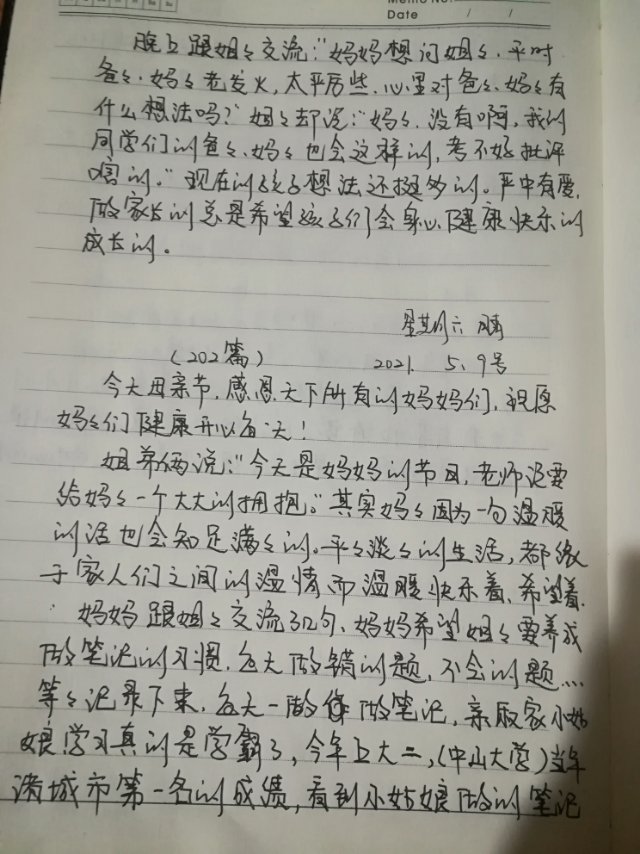 Memo No.
Date / /
晚上跟姐々交流："妈妈想问姐々，平时
爸々、妈々老发火，太严厉些，心里对爸々、妈々有
什么想法吗？"姐々却说："妈々，没有啊，我的
同学们的爸々、妈々也会这样的，考不好批评
啥的。"现在的孩子想法还挺多的。严中有爱，
做家长的总是希望孩子们会身心健康快乐的
成长的。
星期六 晴
（202篇） 2021. 5、9号
今天母亲节，感恩天下所有的妈妈们，祝愿
妈々们健康开心每天！
姐弟俩说："今天是妈妈的节日，老师说要
给妈々一个大大的拥抱。"其实妈々因为一句温暖
的话也会知足满々的。平々淡々的生活，都缘
于家人们之间的温情而温暖快乐着、希望着.
妈妈跟姐々交流几句、妈妈希望姐々要养成
做笔记的习惯，每天做错的题，不会的题…
等々记录下来，每天一做做笔记，亲戚家小姑
娘学习真的是学霸了，今年上大二，（中山大学）当年
诸城市第一名的成绩，看到小姑娘做的笔记